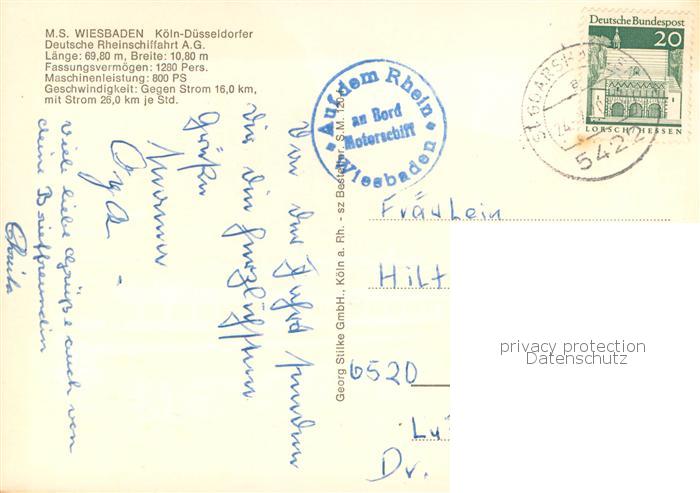 M.S. WIESBADEN Köln-Düsseldorfer
Deutsche Rheinschiffahrt A.G.
Länge: 69,80 m, Breite: 10,80 m
Fassungsvermögen: 1280 Pers.
Maschinenleistung: 800 PS
Geschwindigkeit: Gegen Strom 16,0 km,
mit Strom 26,0 km je Std.
Auf dem Rhein
an Bord
Motorschiff
Wiesbaden
Deutsche Bundespost
20
LORSCH/HESSEN
5422
Von der Fahrt senden
wir die herzlichsten
Grüße
Viele liebe Grüße auch von
deine Brieffreundin
Georg Stilke GmbH., Köln a. Rh. - sz Bestellnr. S.M. 120
Fräulein
Hilt
6520
Dr.
privacy protection
Datenschutz